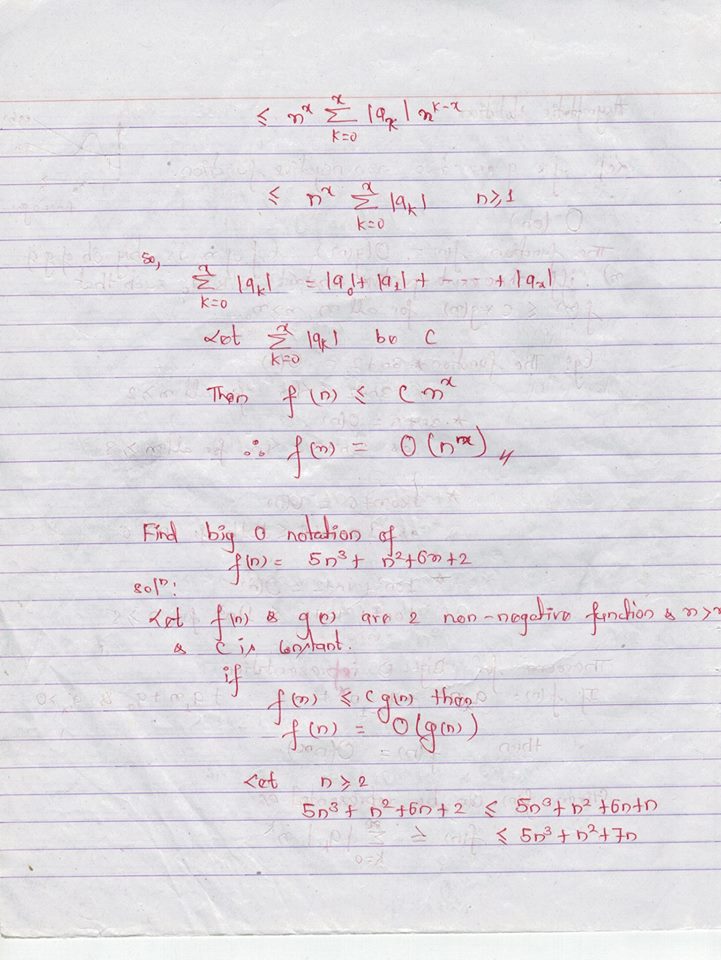 ≤ n^x Σ_{k=0}^{x} |a_x| n^{k-x}
≤ n^x Σ_{k=0}^{x} |a_k| n≥1
So,
Σ_{k=0}^{x} |a_k| = |a_0|+ |a_1| + - - - + |a_x|
Let Σ_{k=0}^{x} |a_k| be C
Then f(n) ≤ C n^x
∴ f(n) = O(n^x)
Find big O notation of
f(n) = 5n³ + n²+6n+2
solⁿ:
Let f(n) & g(n) are 2 non-negative function & n>n
& C is constant.
if
f(n) ≤ c g(n) then
f(n) = O(g(n))
Let n≥2
5n³ + n²+6n+2 ≤ 5n³+n²+6n+n
≤ 5n³+n²+7n